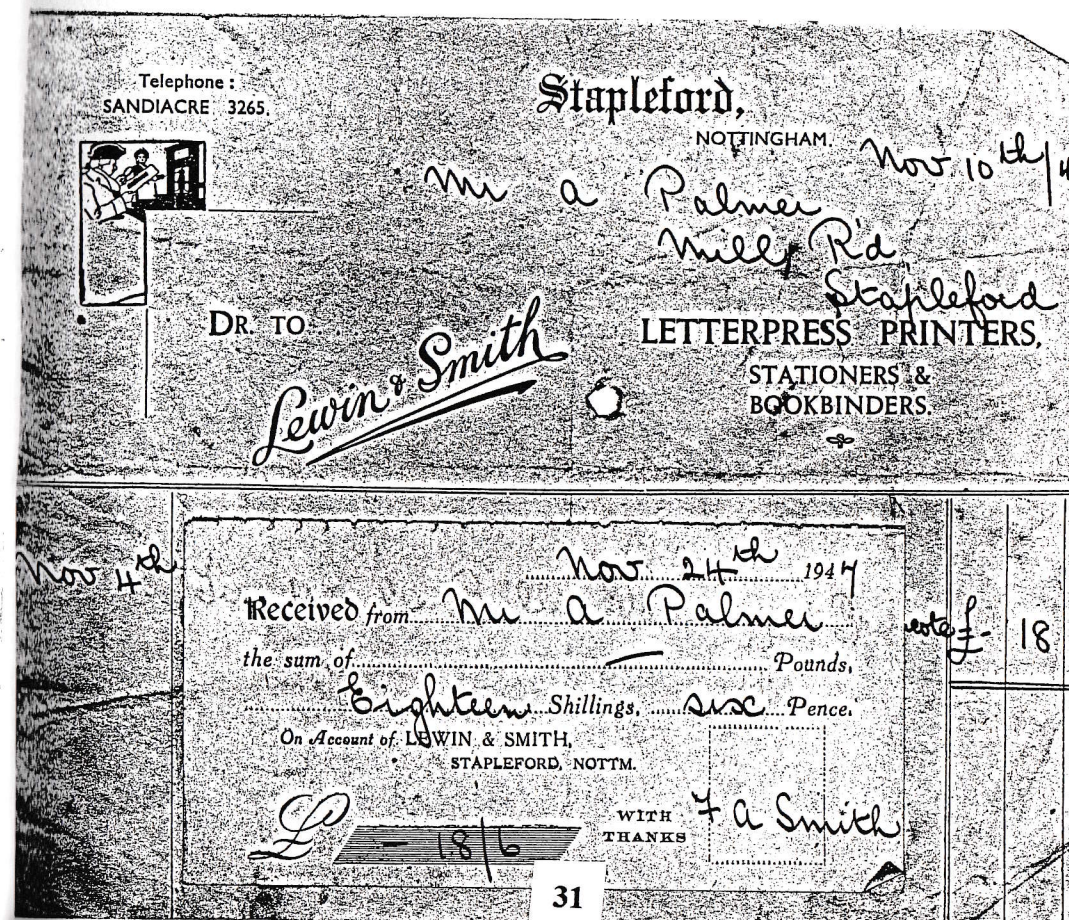 Telephone :
SANDIACRE 3265.
Stapleford,
NOTTINGHAM.
Nov. 10th/4
Mr A Palmer
Mill Rd
Stapleford
DR. TO
Lewin & Smith
LETTERPRESS PRINTERS,
STATIONERS &
BOOKBINDERS.
Nov 4th
Nov. 24th 1947
Received from Mr A Palmer
the sum of — Pounds,
Eighteen Shillings, six Pence.
On Account of LEWIN & SMITH,
STAPLEFORD, NOTTM.
£ - 18/6
WITH
THANKS
F A Smith
£- 18
31